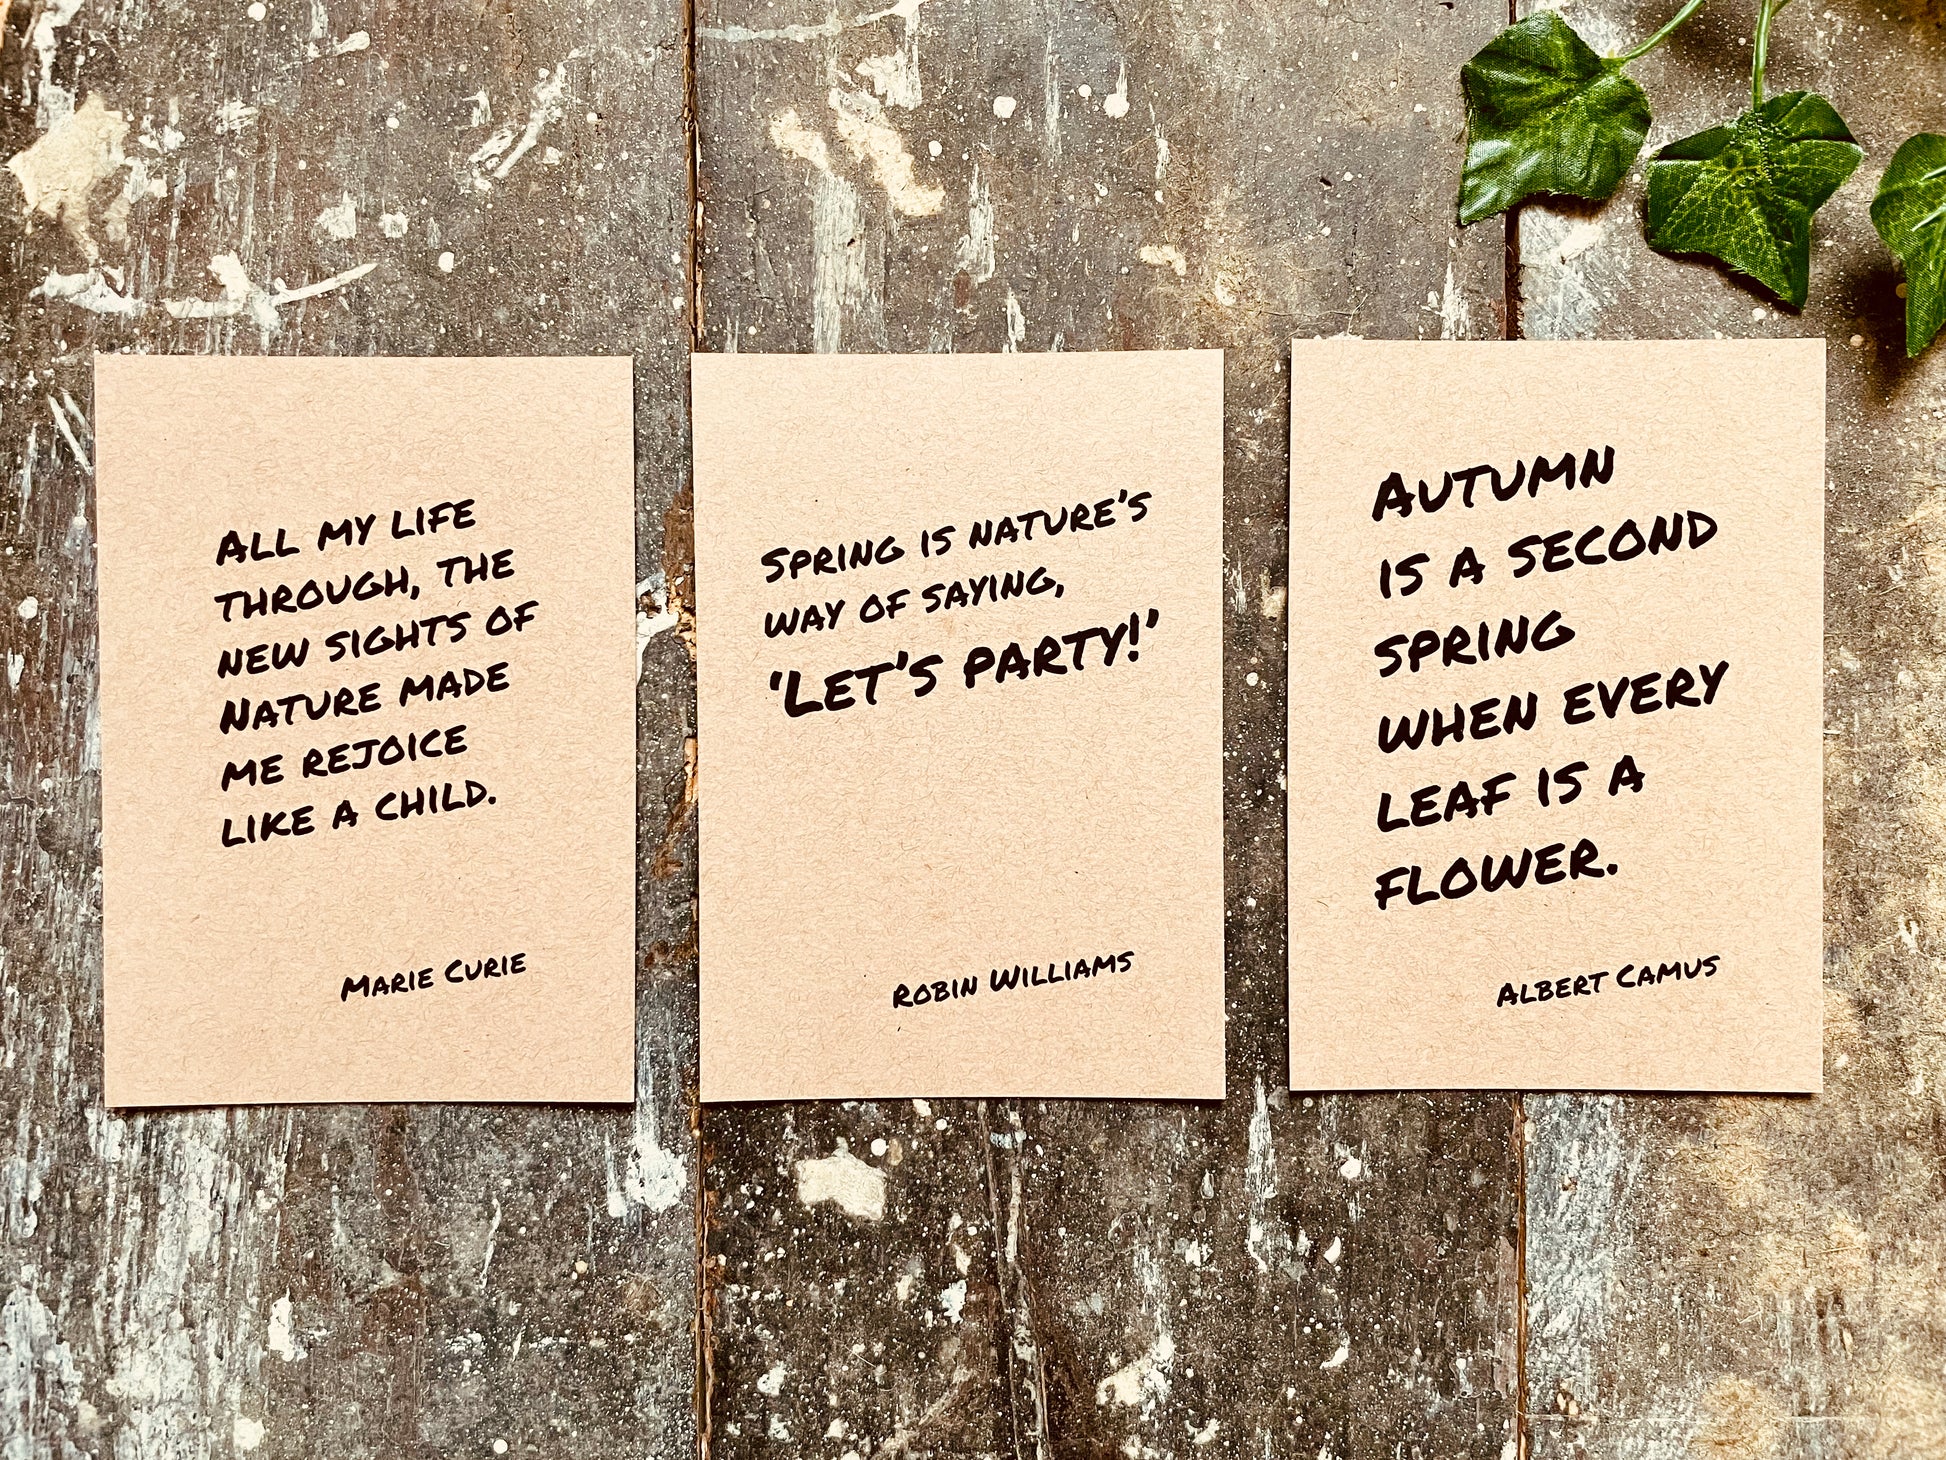 All my life
through, the
new sights of
Nature made
me rejoice
like a child.
Marie Curie
Spring is nature's
way of saying,
'Let's party!'
Robin Williams
Autumn
is a second
spring
when every
leaf is a
flower.
Albert Camus